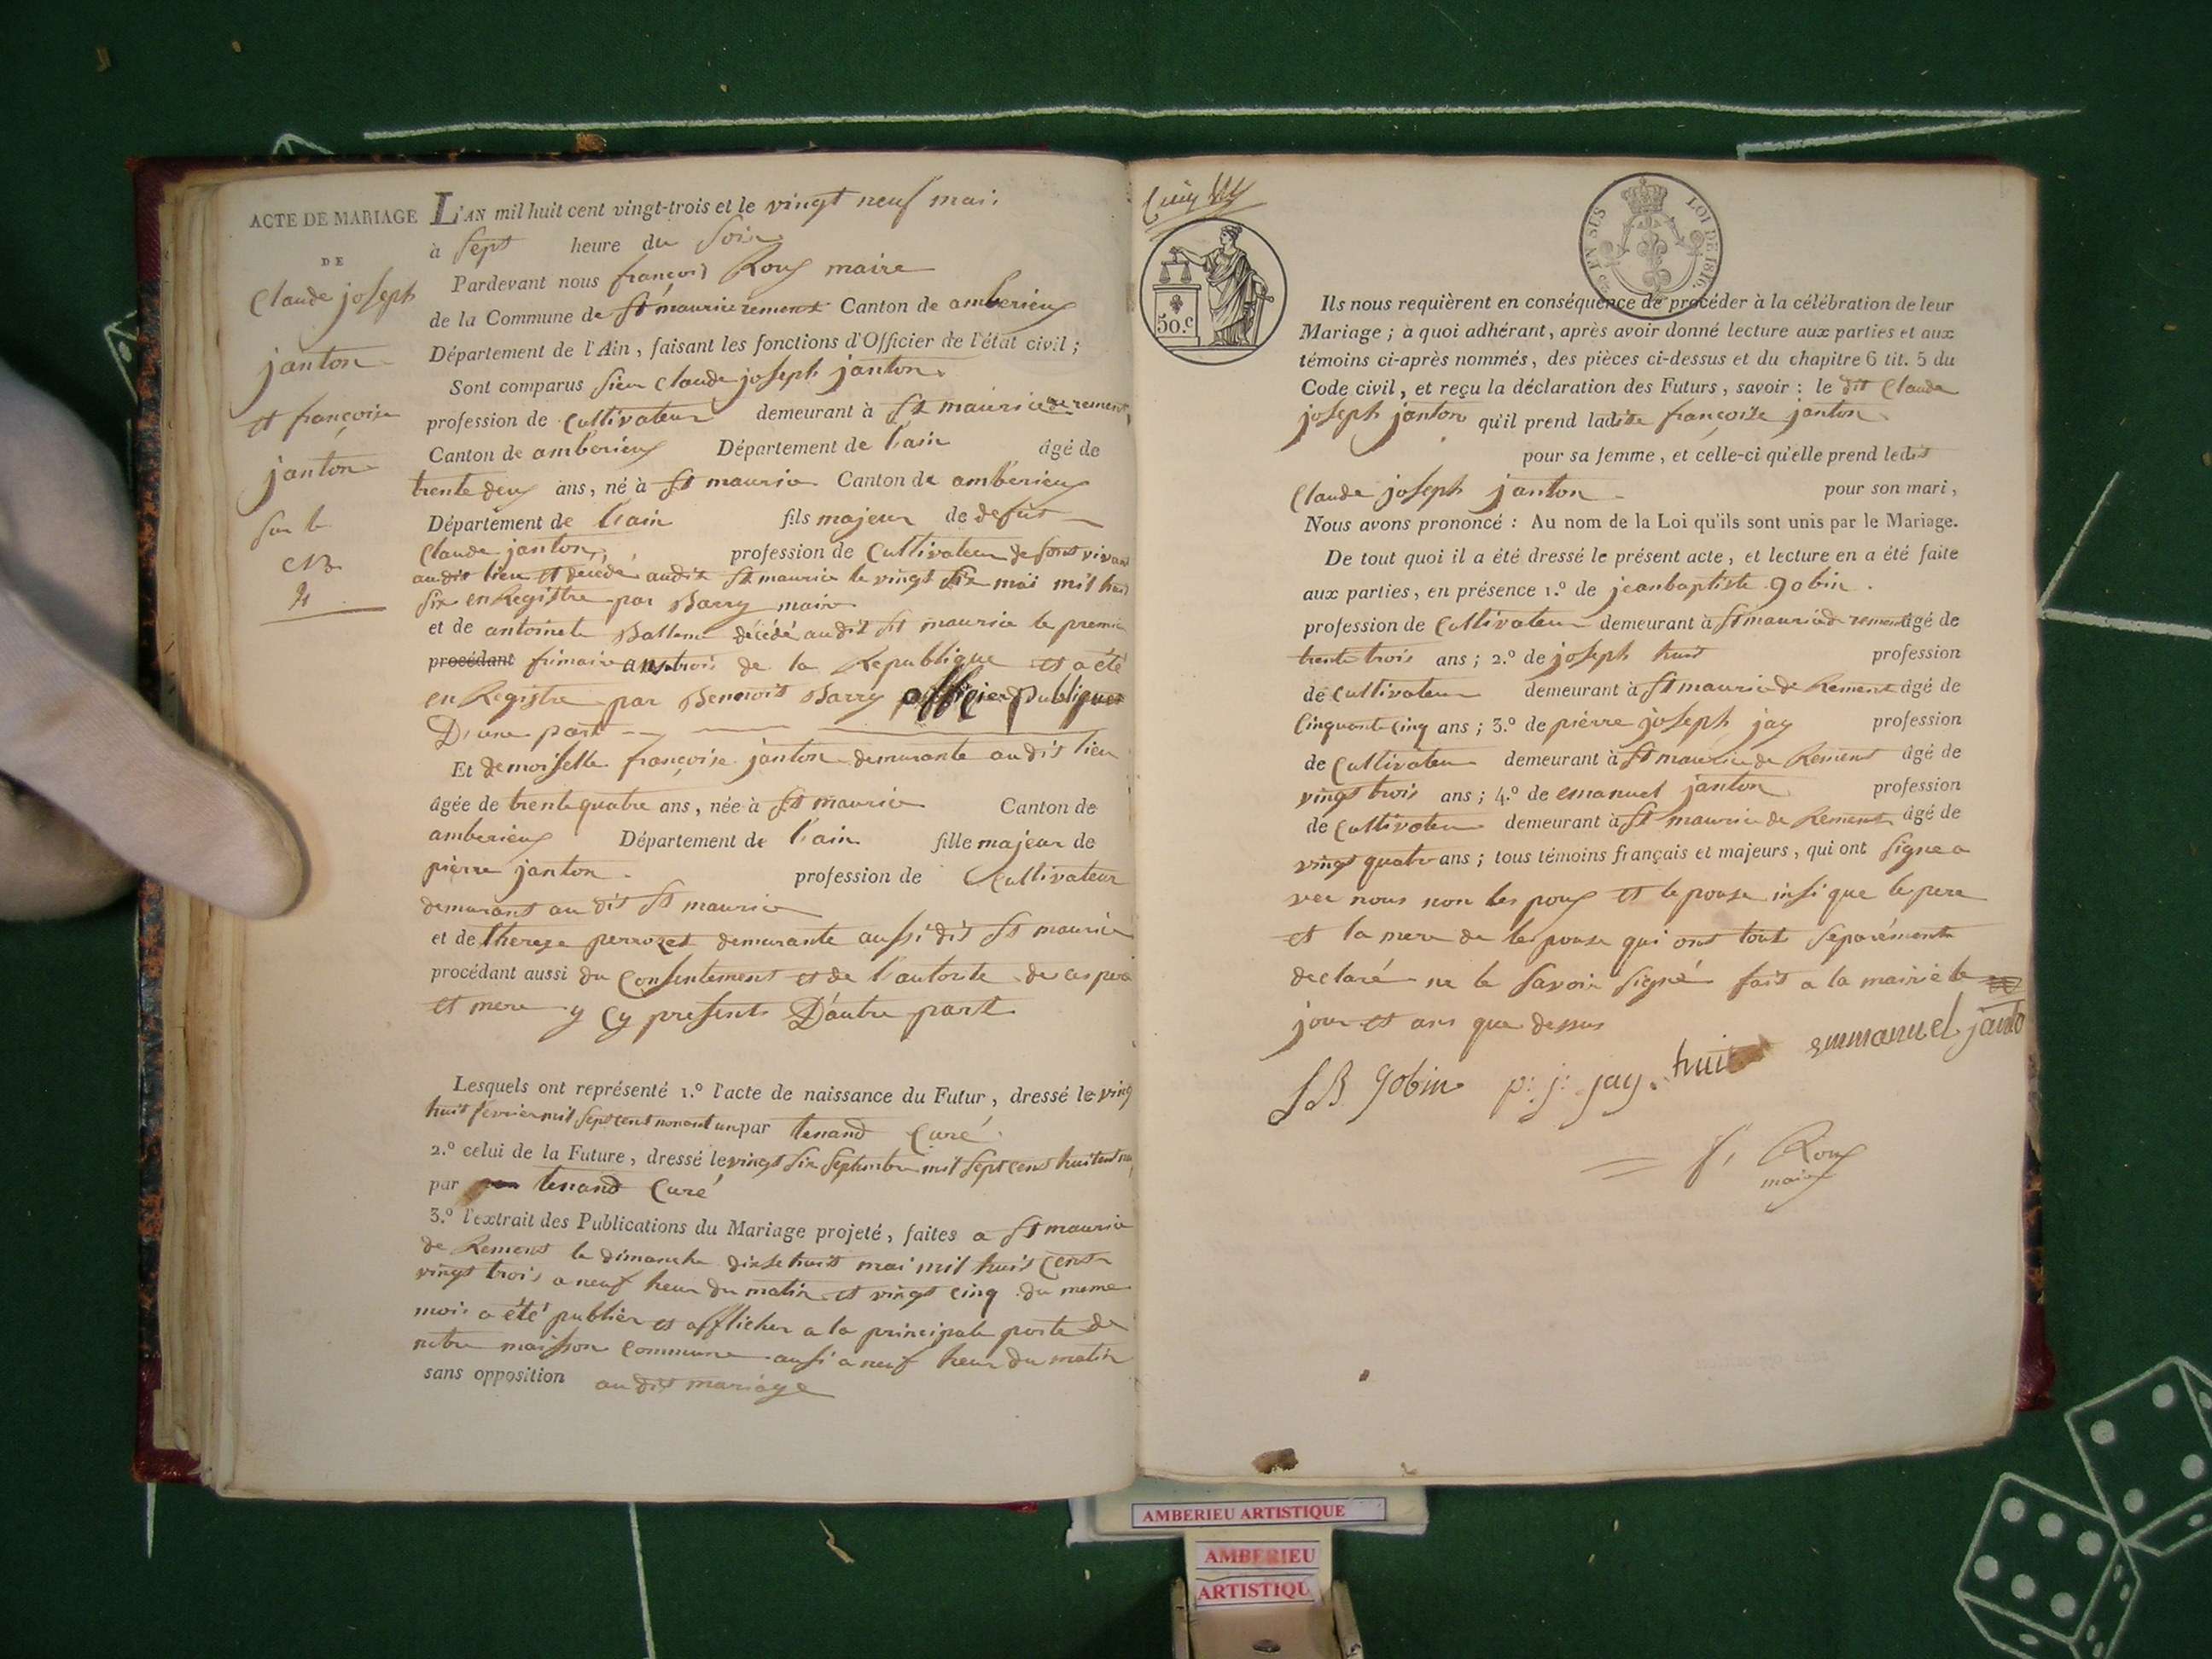 ACTE DE MARIAGE
DE
Claude joseph
janton
et françoise
janton
sur le
L'AN mil huit cent vingt-trois et le vingt neuf mai
à sept heure du soir
Pardevant nous françois Roux maire
de la Commune de St maurice remens Canton de amberieux
Département de l'Ain, faisant les fonctions d'Officier de l'état civil ;
Sont comparus sieur Claude joseph janton
profession de Cultivateur demeurant à St maurice de remens
Canton de amberieux Département de l'ain âgé de
trente deux ans, né à St maurice Canton de amberieux
Département de l'ain fils majeur de defut
Claude janton profession de Cultivateur de sont vivant
au dit lieu et decedé audit St maurice le vingt six mai mil huit
six enRegistre par Barry maire
et de antoinete Ballem décédé audit St maurice le premie
procédant frimaire an trois de la Republique et a été
en Registre par Benenoit Barry officier publique
D'une part
Et demoiselle françoise janton demurante au dit lieu
âgée de trente quatre ans, née à St maurice Canton de
amberieux Département de l'ain fille majeur de
pierre janton profession de Cultivateur
demurant au dit St maurice
et de therese perrozet demurante aussi dit St maurice
procédant aussi du Consentement et de l'autorite de ces pere
et mere y Cy present D'autre part
Lesquels ont représenté 1.º l'acte de naissance du Futur, dressé le vingt
huit fevrier mil sept cent nonant un par tenand Curé
2.º celui de la Future, dressé le vingt six septembre mil sept cent huitent
par tenand Curé
3.º l'extrait des Publications du Mariage projeté, faites a St maurice
de Remens le dimanche dixsehuit mai mil huit cent
vingt trois a neuf heur du matin et vingt cinq du meme
mois a été publier et afflicher a la principale porte de
notre maisson commune ausi a neuf heur du matin
sans opposition au dit mariage
50.c
EN SUS LOI DE 1816.
Ils nous requièrent en conséquence de procéder à la célébration de leur
Mariage ; à quoi adhérant, après avoir donné lecture aux parties et aux
témoins ci-après nommés, des pièces ci-dessus et du chapitre 6 tit. 5 du
Code civil, et reçu la déclaration des Futurs, savoir : le dit Claude
joseph janton qu'il prend ladite françoise janton
pour sa femme, et celle-ci qu'elle prend ledit
Claude joseph janton pour son mari,
Nous avons prononcé : Au nom de la Loi qu'ils sont unis par le Mariage.
De tout quoi il a été dressé le présent acte, et lecture en a été faite
aux parties, en présence 1.º de jeanbaptiste gobin
profession de Cultivateur demeurant à St maurice de remens âgé de
trente trois ans ; 2.º de joseph huit profession
de Cultivateur demeurant à St maurice de Remens âgé de
Cinquante Cinq ans ; 3.º de pierre joseph jay profession
de Cultivateur demeurant à St maurice de Remens âgé de
vingt trois ans ; 4.º de emanuel janton profession
de Cultivateur demeurant à St maurice de Remens âgé de
vingt quatre ans ; tous témoins français et majeurs, qui ont signe a
vec nous non les poux et le pouse insi que le pere
et la mere de les pouse qui ont tout separément
declaré ne le savoir signé fait a la mairie le
jour et ans que dessus
J B gobin p: j: jay. huit emmanuel janto
f, Roux
maire
AMBERIEU ARTISTIQUE
AMBERIEU
ARTISTIQU